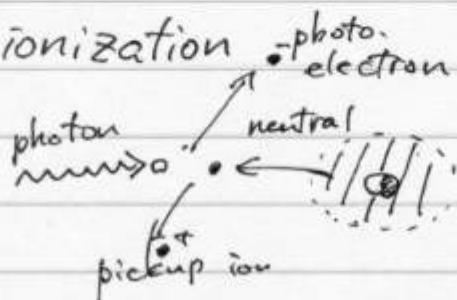 ionization
photo-
electron
photon
neutral
pickup ion